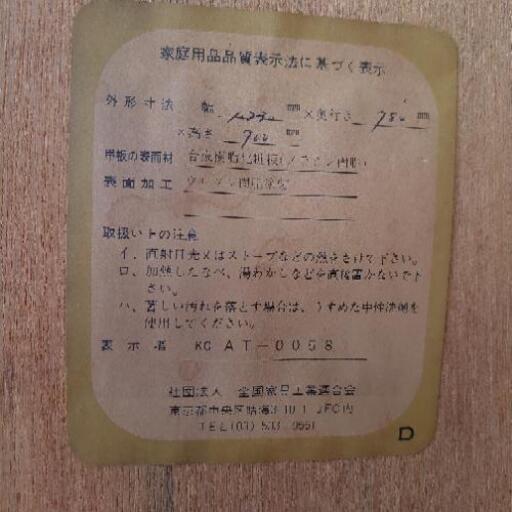 家庭用品品質表示法に基づく表示
外形寸法 幅 mm×奥行き 780 mm
×高さ 700 mm
甲板の表面材 合成樹脂化粧板(メラミン樹脂)
表面加工 ウレタン樹脂塗装
取扱い上の注意
イ. 直射日光又はストーブなどの熱をさけて下さい。
ロ. 加熱したなべ、湯わかしなどを直接置かないで下
さい。
ハ. 著しい汚れを落とす場合は、うすめた中性洗剤を
使用してください。
表示者 KC AT-0058
社団法人 全国家具工業連合会
東京都中央区 JFC内
TEL(03)
D